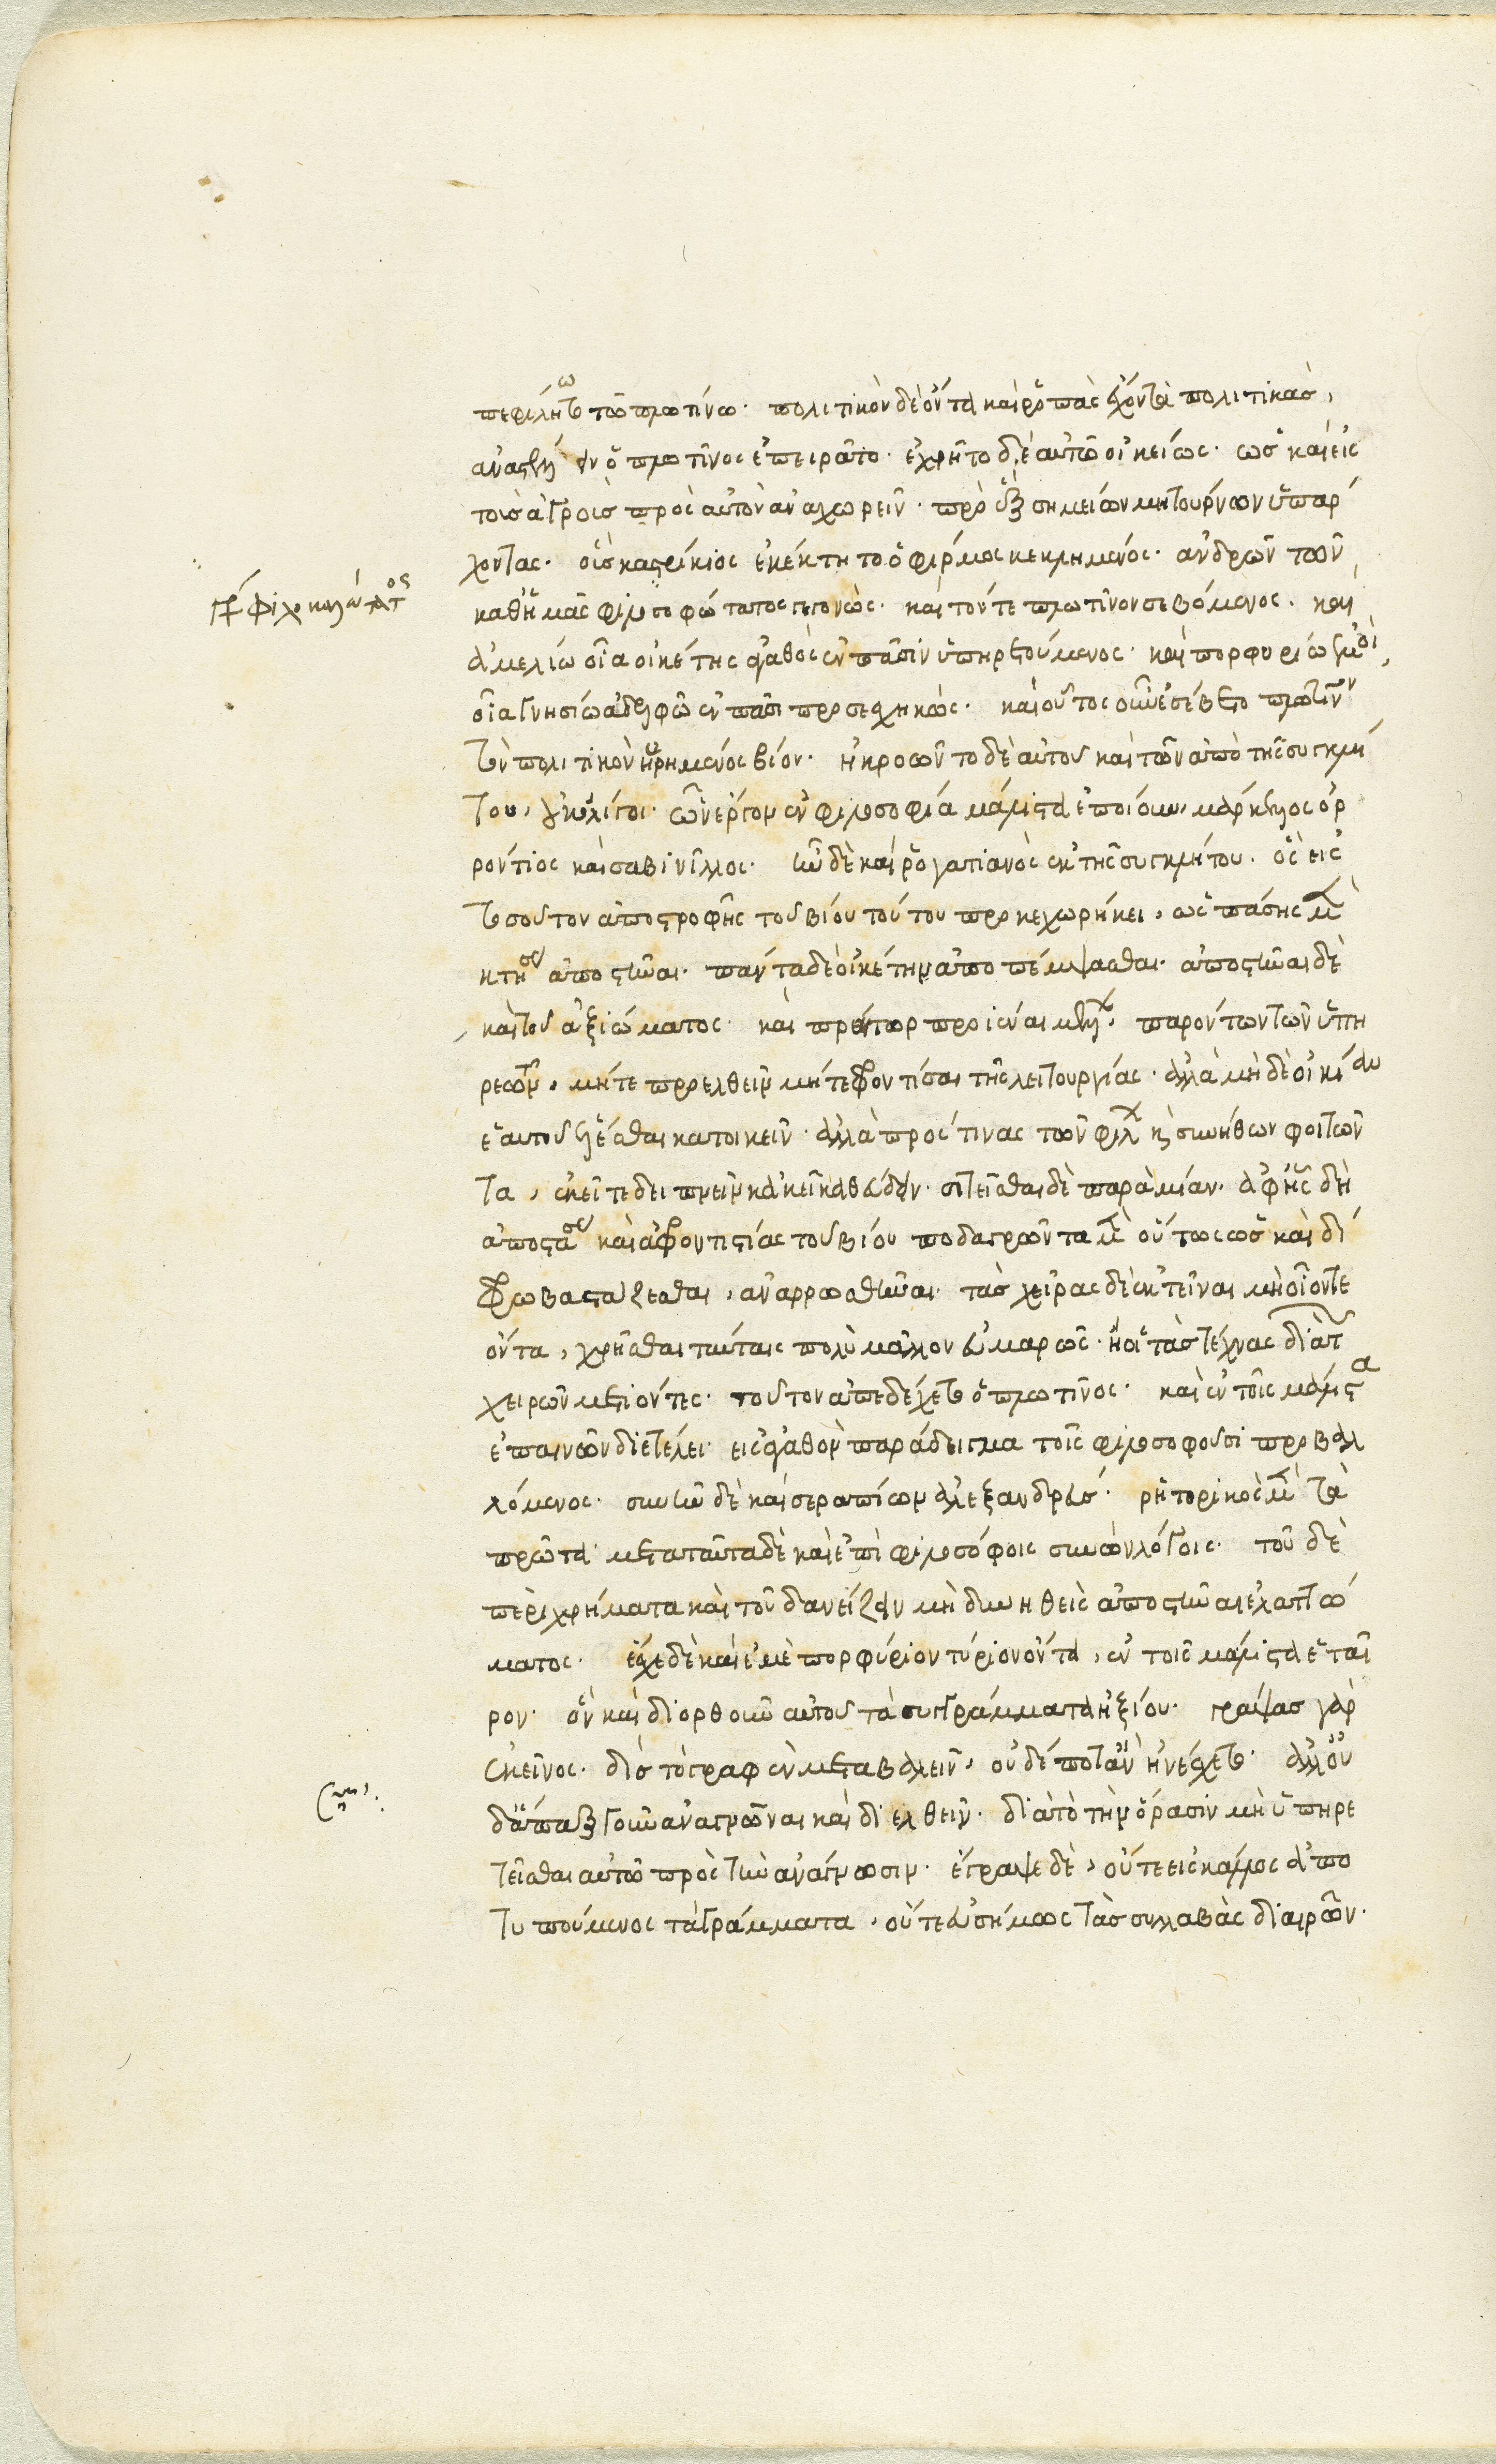 πεφίλητο τῶ πλωτίνω· πολιτικὸν δὲ ὄντα καὶ ῥοπὰς ἔχοντα πολιτικὰσ,
ἀναστέλλειν ὁ πλωτῖνος ἐπειρᾶτο· ἐχρῆτο δὲ αὐτῶ οἰκείως· ὡσ καὶ εἰς
τοὺσ ἀγροὺσ πρὸς αὐτὸν ἀναχωρεῖν· πρὸ ἓξ σημείων μητουρνῶν ὑπάρ
χοντας· οὓσ καστρίκιος ἐκέκτητο ὁ φίρμος κεκλημένος· ἀνδρῶν τῶν
γρ φιλοκαλώτατος
καθ' ἡμᾶς φιλοσοφώτατος γεγονὼς· καὶ τόν τε πλωτῖνον σεβόμενος· καὶ
ἀμελίω οἷα οἰκέτης ἀγαθὸς ἐν πᾶσιν ὑπηρετούμενος· καὶ πορφυρίω ἐμοὶ,
οἷα γνησίω ἀδελφῶ ἐν πᾶσι προσεσχηκὼς· καὶ οὗτος οὖν ἐσέβετο πλωτῖνον
τὸν πολιτικὸν ἡρημένος βίον· ἠκροῶντο δὲ αὐτοῦ καὶ τῶν ἀπὸ τῆς συγκλή
του, οὐκ ὀλίγοι· ὧν ἔργον ἐν φιλοσοφία μάλιστα ἐποίουν, μάρκελλος ὀρ
ρόντιος καὶ σαβινῖλλος· ἦν δὲ καὶ ῥογατιανὸς ἐκ τῆς συγκλήτου· ὃς εἰς
τοσοῦτον ἀποστροφῆς τοῦ βίου τούτου προκεχωρήκει, ὡς πάσης μὲν
κτήσεως ἀποστῆναι· πάντα δὲ οἰκέτην ἀποπέμψασθαι· ἀποστῆναι δὲ
καὶ τοῦ ἀξιώματος· καὶ πραίτωρ προϊέναι μέλλων· παρόντων τῶν ὑπη
ρετῶν, μήτε προελθεῖν μήτε φροντίσαι τῆς λειτουργίας· ἀλλὰ μὴ δὲ οἰκίαν
ἑαυτοῦ ἑλέσθαι κατοικεῖν· ἀλλὰ πρός τινας τῶν φίλων καὶ συνήθων φοιτῶν
τα, ἐκεῖ τε δειπνεῖν κἀκεῖ καθεύδειν· σιτεῖσθαι δὲ παρὰ μίαν· ἀφ' ἧς δὴ
ἀποστάσεως καὶ ἀφροντιστίας τοῦ βίου ποδαγρῶντα μὲν οὕτως ὡσ καὶ δί
φρω βαστάζεσθαι, ἀναρρωσθῆναι· τὰσ χεῖρας δὲ ἐκτεῖναι μὴ οἷόν τε
ὄντα, χρῆσθαι ταύταις πολὺ μᾶλλον εὐμαρῶς· ἢ οἱ τὰσ τέχνας διὰ τῶν
χειρῶν μετιόντες· τοῦτον ἀπεδέχετο ὁ πλωτῖνος· καὶ ἐν τοῖς μάλιστα
ἐπαινῶν διετέλει· εἰς ἀγαθὸν παράδειγμα τοῖς φιλοσοφοῦσι προβαλ
λόμενος· συνῆν δὲ καὶ σεραπίων ἀλεξανδρεύσ· ῥητορικὸς μὲν τὰ
πρῶτα· μετὰ ταῦτα δὲ καὶ ἐπὶ φιλοσόφοις συνὼν λόγοις· τοῦ δὲ
περὶ χρήματα καὶ τοῦ δανείζειν μὴ δυνηθεὶς ἀποστῆναι ἐλαττώ
ματος· ἔσχε δὲ καὶ ἐμὲ πορφύριον τύριον ὄντα, ἐν τοῖς μάλιστα ἑταῖ
ρον· ὃν καὶ διορθοῦν αὐτοῦ τὰ συγγράμματα ἠξίου· γράψασ γὰρ
ἐκεῖνος· δὶσ τὸ γραφὲν μεταβαλεῖν, οὐδέποτ' ἂν ἠνέσχετο· ἀλλ' οὐ
δ' ἅπαξ γοῦν ἀναγνῶναι καὶ διελθεῖν· διὰ τὸ τὴν ὅρασιν μὴ ὑπηρε
τεῖσθαι αὐτῶ πρὸς τὴν ἀνάγνωσιν· ἔγραψε δὲ, οὔτε εἰς κάλλος ἀπο
τυπούμενος τὰ γράμματα, οὔτε εὐσήμως τὰσ συλλαβὰς διαιρῶν·